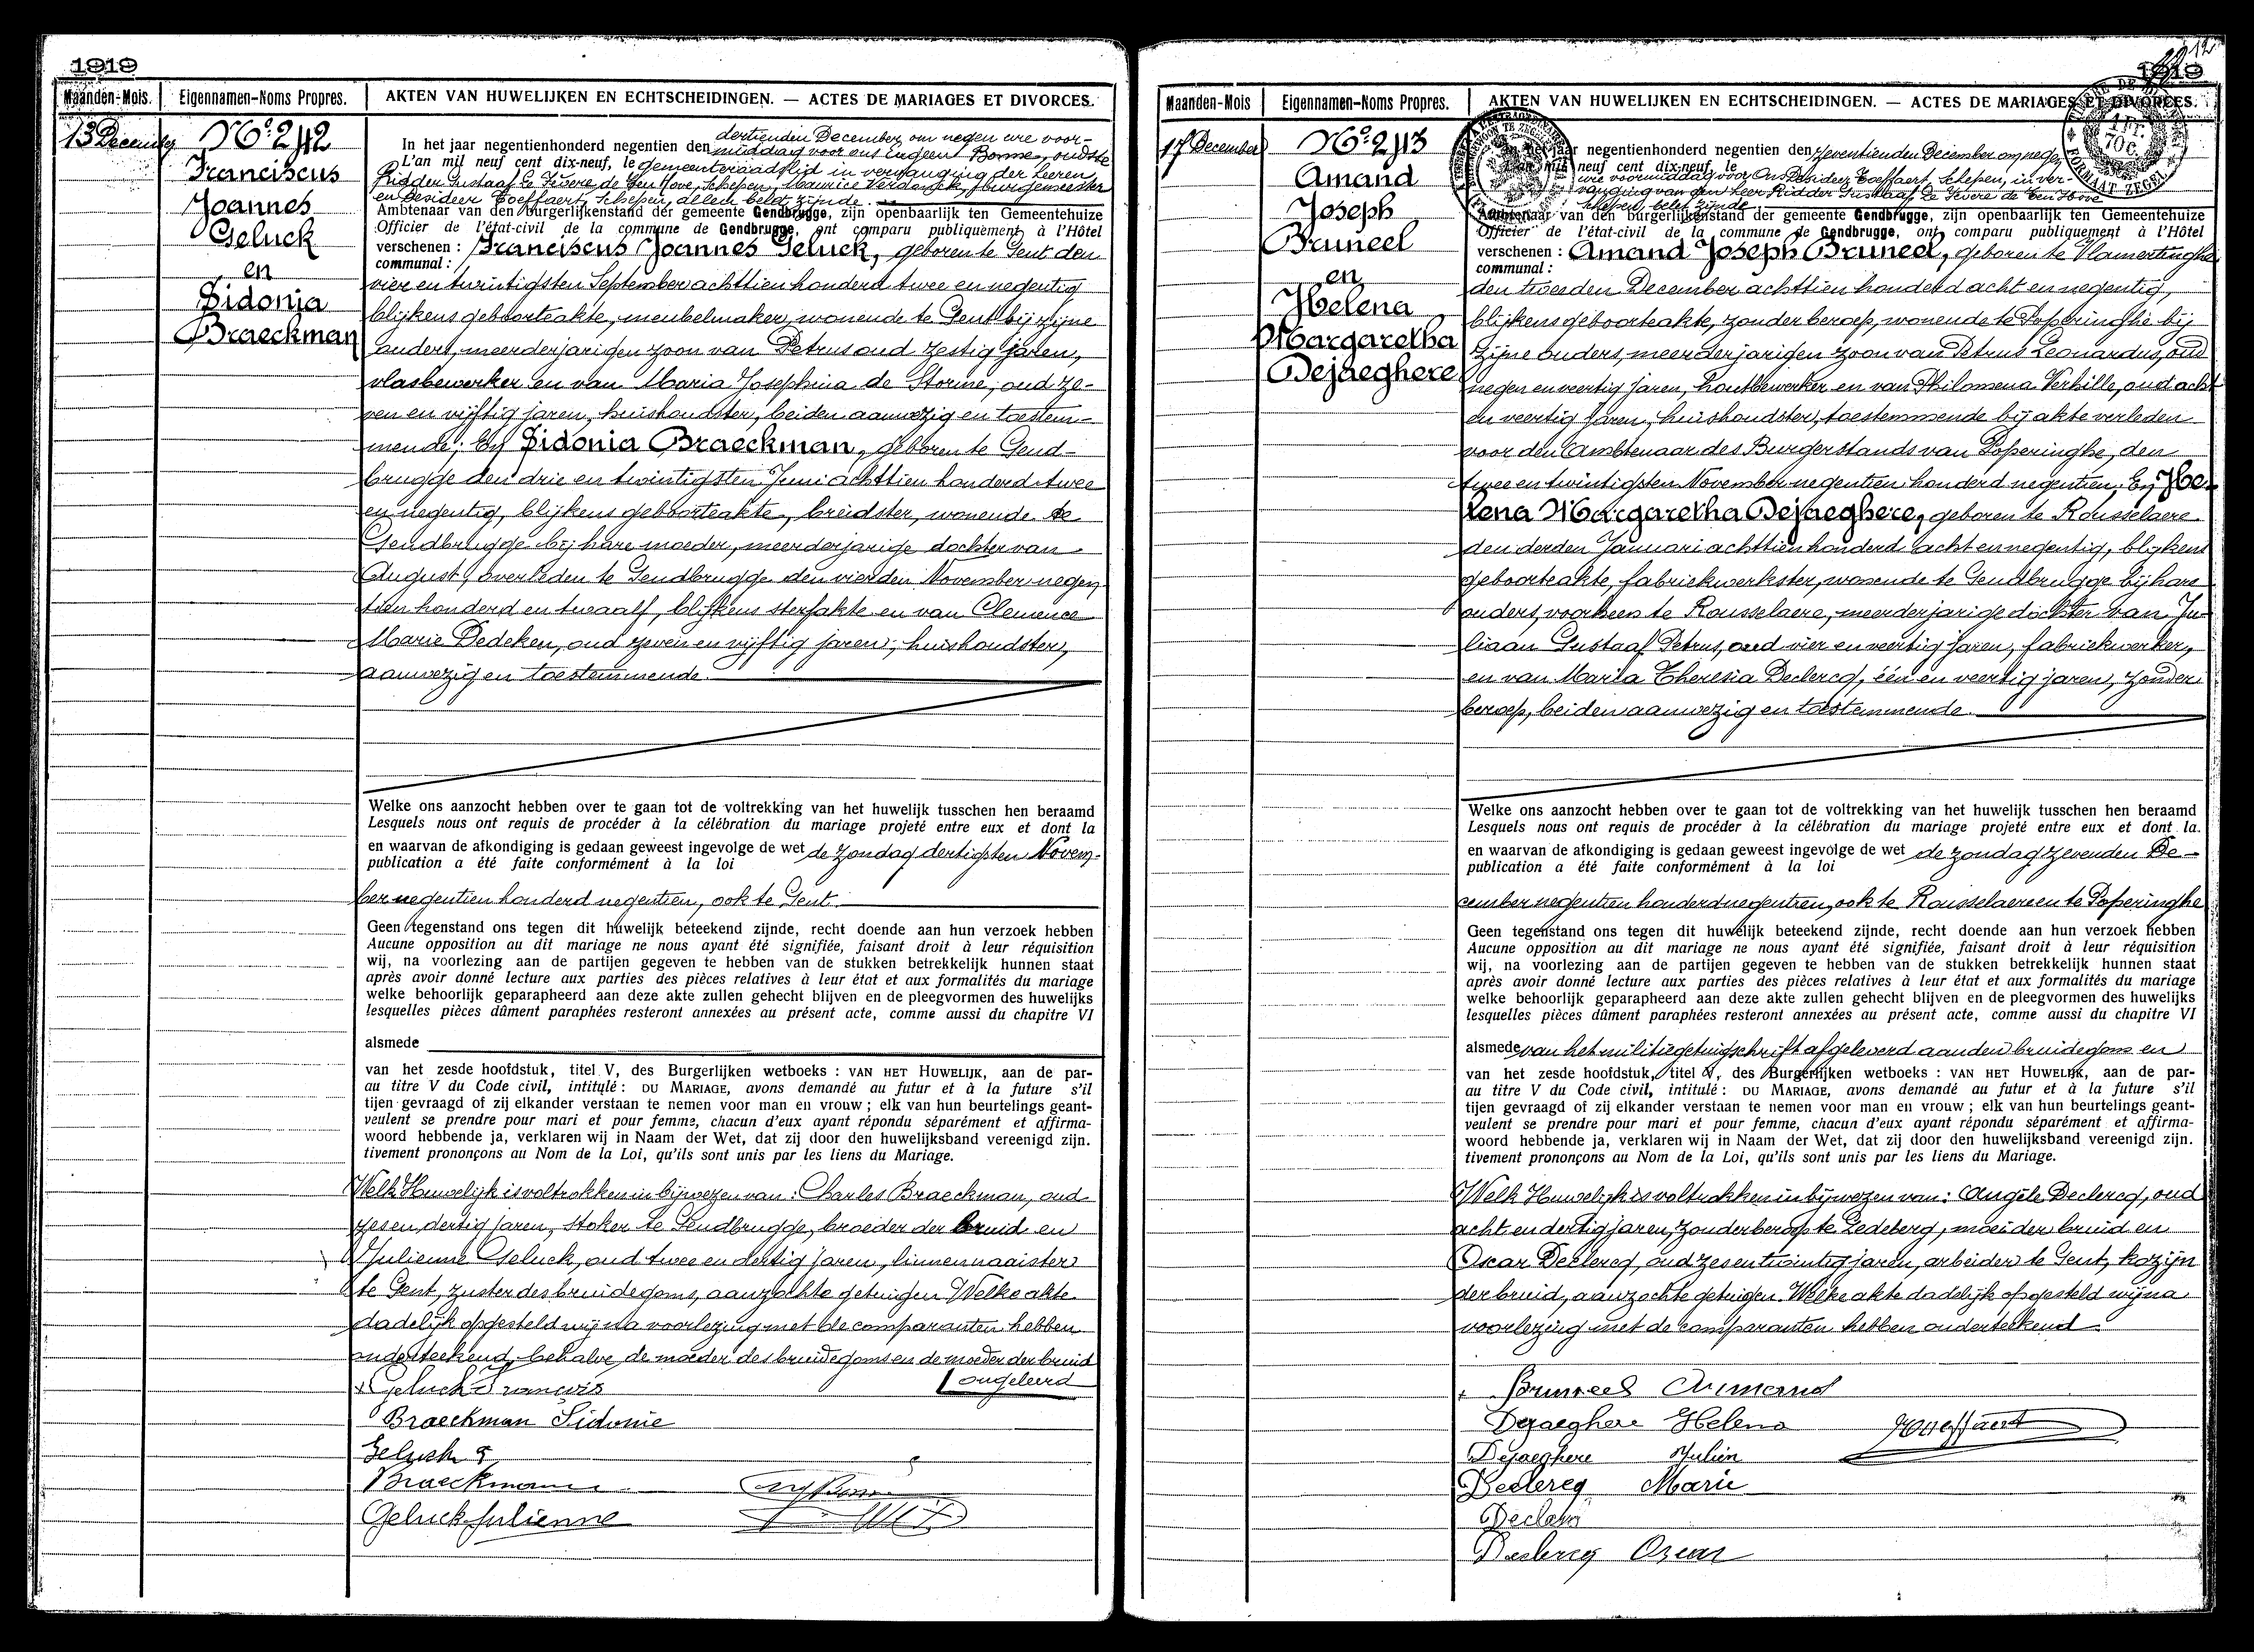 1919
Maanden-Mois. Eigennamen-Noms Propres. AKTEN VAN HUWELIJKEN EN ECHTSCHEIDINGEN. — ACTES DE MARIAGES ET DIVORCES.
13 December
No. 242
Franciscus
Joannes
Geluck
en
Sidonia
Braeckman
dertienden December, om negen ure voor-
In het jaar negentienhonderd negentien den middag voor ons Eugeen Bonne, oudste
L'an mil neuf cent dix-neuf, le gemeenteraadslid in vervanging der Heeren
Ridder Gustaaf Le Fevere de Ten Hove, Schepen, Maurice Verdonck, burgemeester
en Desideer Toeffaert, Schepen, allen belet zijnde.
Ambtenaar van den burgerlijkenstand der gemeente Gendbrugge, zijn openbaarlijk ten Gemeentehuize
Officier de l'état-civil de la commune de Gendbrugge, ont comparu publiquement à l'Hôtel
verschenen : Franciscus Joannes Geluck, geboren te Gent den
communal :
vier en twintigsten September achttien honderd twee en negentig
blijkens geboorteakte, meubelmaker, wonende te Gent bij zijne
ouders, meerderjarigen zoon van Petrus oud zestig jaren,
vlasbewerker en van Maria Josephina de Storme, oud ze-
ven en vijftig jaren, huishoudster, beiden aanwezig en toestem-
mende; En Sidonia Braeckman, geboren te Gend-
brugge den drie en twintigsten Juni achttien honderd twee
en negentig, blijkens geboorteakte, breidster, wonende te
Gendbrugge bij hare moeder, meerderjarige dochter van
August, overleden te Gendbrugge den vierden November negen-
tien honderd en twaalf, blijkens sterfakte en van Clemence
Marie Dedeken, oud zeven en vijftig jaren, huishoudster,
aanwezig en toestemmende.
Welke ons aanzocht hebben over te gaan tot de voltrekking van het huwelijk tusschen hen beraamd
Lesquels nous ont requis de procéder à la célébration du mariage projeté entre eux et dont la
en waarvan de afkondiging is gedaan geweest ingevolge de wet de zondag dertigsten Novem-
publication a été faite conformément à la loi
ber negentien honderd negentien, ook te Gent.
Geen tegenstand ons tegen dit huwelijk beteekend zijnde, recht doende aan hun verzoek hebben
Aucune opposition au dit mariage ne nous ayant été signifiée, faisant droit à leur réquisition
wij, na voorlezing aan de partijen gegeven te hebben van de stukken betrekkelijk hunnen staat
après avoir donné lecture aux parties des pièces relatives à leur état et aux formalités du mariage
welke behoorlijk geparapheerd aan deze akte zullen gehecht blijven en de pleegvormen des huwelijks
lesquelles pièces dûment paraphées resteront annexées au présent acte, comme aussi du chapitre VI
alsmede
van het zesde hoofdstuk, titel V, des Burgerlijken wetboeks : VAN HET HUWELIJK, aan de par-
au titre V du Code civil, intitulé : DU MARIAGE, avons demandé au futur et à la future s'il
tijen gevraagd of zij elkander verstaan te nemen voor man en vrouw ; elk van hun beurtelings geant-
veulent se prendre pour mari et pour femme, chacun d'eux ayant répondu séparément et affirma-
woord hebbende ja, verklaren wij in Naam der Wet, dat zij door den huwelijksband vereenigd zijn.
tivement prononçons au Nom de la Loi, qu'ils sont unis par les liens du Mariage.
Welk Huwelijk is voltrokken in bijwezen van : Charles Braeckman, oud
zes en dertig jaren, stoker te Gendbrugge, broeder der bruid en
Julienne Geluck, oud twee en dertig jaren, linnennaaister
te Gent, zuster des bruidegoms, aanzochte getuigen. Welke akte
dadelijk opgesteld wij na voorlezing met de comparanten hebben
onderteekend, behalve de moeder des bruidegoms en de moeder der bruid
ongeleerd
Geluck François
Braeckman Sidonie
Geluck
Braeckman
Geluck Julienne
1919
Maanden-Mois Eigennamen-Noms Propres. AKTEN VAN HUWELIJKEN EN ECHTSCHEIDINGEN. — ACTES DE MARIAGES ET DIVORCES.
17 December
No. 243
Amand
Joseph
Bruneel
en
Helena
Margaretha
Dejaeghere
In het jaar negentienhonderd negentien den zeventienden December om negen
L'an mil neuf cent dix-neuf, le
ure voormiddag voor Ons Desideer Toeffaert, Schepen, in ver-
vanging van den Heer Ridder Gustaaf Le Fevere de Ten Hove
Schepen, belet zijnde
Ambtenaar van den burgerlijkenstand der gemeente Gendbrugge, zijn openbaarlijk ten Gemeentehuize
Officier de l'état-civil de la commune de Gendbrugge, ont comparu publiquement à l'Hôtel
verschenen : Amand Joseph Bruneel, geboren te Vlamertinghe
communal :
den tweeden December achttien honderd acht en negentig,
blijkens geboorteakte, zonder beroep, wonende te Poperinghe bij
zijne ouders, meerderjarigen zoon van Petrus Leonardus, oud
negen en veertig jaren, houtbewerker en van Philomena Verhille, oud acht
en veertig jaren, huishoudster, toestemmende bij akte verleden
voor den Ambtenaar des Burgerstands van Poperinghe, den
twee en twintigsten November negentien honderd negentien, En He-
lena Margaretha Dejaeghere, geboren te Rousselaere
den derden Januari achttien honderd acht en negentig, blijkens
geboorteakte, fabriekwerkster, wonende te Gendbrugge bij hare
ouders, voorheen te Rousselaere, meerderjarige dochter van Ju-
liaan Gustaaf Petrus, oud vier en veertig jaren, fabriekwerker,
en van Maria Theresia Declercq, één en veertig jaren, zonder
beroep, beiden aanwezig en toestemmende.
Welke ons aanzocht hebben over te gaan tot de voltrekking van het huwelijk tusschen hen beraamd
Lesquels nous ont requis de procéder à la célébration du mariage projeté entre eux et dont la.
en waarvan de afkondiging is gedaan geweest ingevolge de wet de zondag zevenden De-
publication a été faite conformément à la loi
cember negentien honderd negentien, ook te Rousselaere en te Poperinghe
Geen tegenstand ons tegen dit huwelijk beteekend zijnde, recht doende aan hun verzoek hebben
Aucune opposition au dit mariage ne nous ayant été signifiée, faisant droit à leur réquisition
wij, na voorlezing aan de partijen gegeven te hebben van de stukken betrekkelijk hunnen staat
après avoir donné lecture aux parties des pièces relatives à leur état et aux formalités du mariage
welke behoorlijk geparapheerd aan deze akte zullen gehecht blijven en de pleegvormen des huwelijks
lesquelles pièces dûment paraphées resteront annexées au présent acte, comme aussi du chapitre VI
alsmede van het militiegetuigschrift afgeleverd aan den bruidegom en
van het zesde hoofdstuk, titel V, des Burgerlijken wetboeks : VAN HET HUWELIJK, aan de par-
au titre V du Code civil, intitulé : DU MARIAGE, avons demandé au futur et à la future s'il
tijen gevraagd of zij elkander verstaan te nemen voor man en vrouw ; elk van hun beurtelings geant-
veulent se prendre pour mari et pour femme, chacun d'eux ayant répondu séparément et affirma-
woord hebbende ja, verklaren wij in Naam der Wet, dat zij door den huwelijksband vereenigd zijn.
tivement prononçons au Nom de la Loi, qu'ils sont unis par les liens du Mariage.
Welk Huwelijk is voltrokken in bijwezen van : Angèle Declercq, oud
acht en dertig jaren, zonder beroep te Ledeberg, moei der bruid en
Oscar Declercq, oud zes en twintig jaren, arbeider te Gent, kozijn
der bruid, aanzochte getuigen. Welke akte dadelijk opgesteld wij na
voorlezing met de comparanten hebben onderteekend
Bruneel Armand
Dejaeghere Helena
Toeffaert
Dejaeghere Julien
Declercq Marie
Declercq Oscar